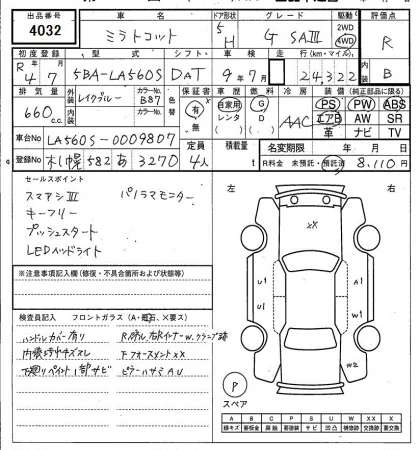 出品番号 車名 ドア形状 グレード 駆動 評価点
4032 ミラトコット 5 H G SAⅢ 2WD 4WD R
初度登録 型式 シフト 車検 走行 (km・マイル) 内装
R 4/7 5BA-LA560S DAT 9年7月 24,322 B
排気量 外装 カラーNo. 色替 保証書 車歴 燃料 冷房 装備 (純正部品に限る)
660 c.c. レイクブルー B87 有・無 自家用 レンタ G D AAC PS PW ABS
内装 カラーNo. エアB AW SR
革 ナビ TV
車台No LA560S-0009807 定員 積載量 名変期限 年 月 日
登録No 札幌 582 あ 3270 4人 t R料金 未預託・預託済 8,110円
セールスポイント
スマアシⅢ パノラマモニター
キーフリー
プッシュスタート
LEDヘッドライト
左 右
XX
U1 A1
U1
W2
P
スペア
※注意事項記入欄(修復・不具合箇所および状態等)
検査員記入 フロントガラス(A・飛石、×要ス)
ハンドルカバー有り
内張キズスレ
下廻りペイント1部サビ
ピラーハサミAU
A B C P S U W XX X
線キズ 要板金 腐蝕 要塗装 サビ 凹凸 補修跡 交換済 要交換